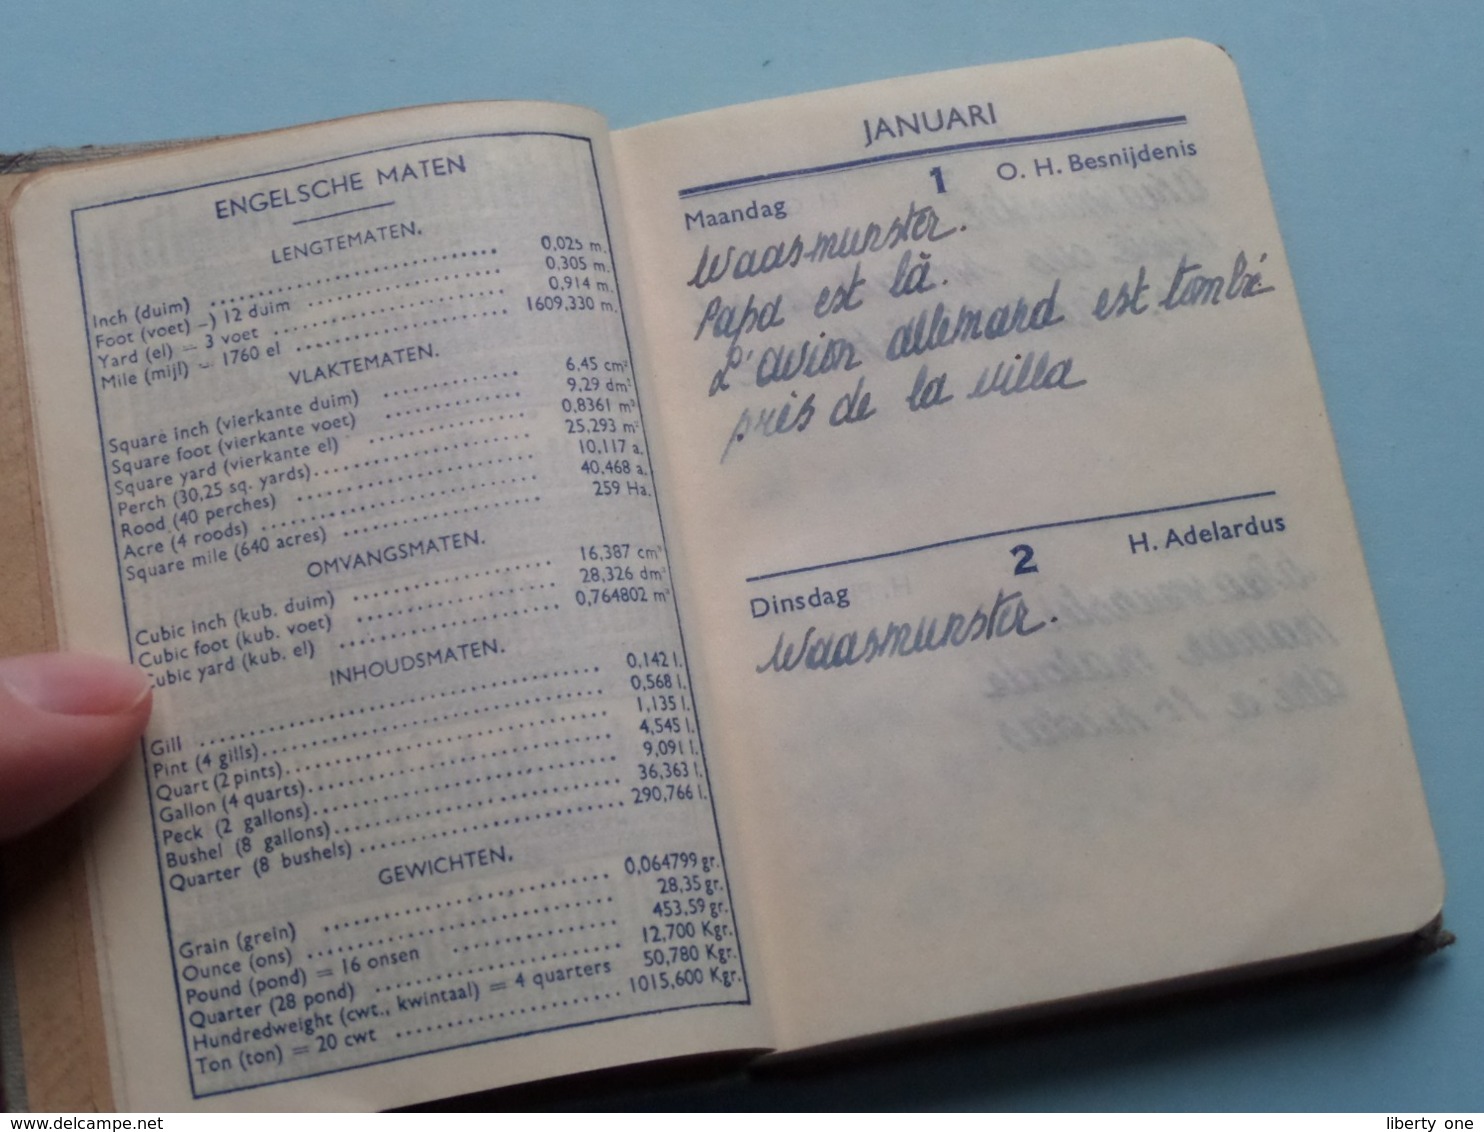 ENGELSCHE MATEN
LENGTEMATEN.
Inch (duim) 0,025 m.
Foot (voet) —) 12 duim 0,305 m.
Yard (el) = 3 voet 0,914 m.
Mile (mijl) = 1760 el 1609,330 m.
VLAKTEMATEN.
Square inch (vierkante duim) 6,45 cm²
Square foot (vierkante voet) 9,29 dm²
Square yard (vierkante el) 0,8361 m²
Perch (30,25 sq. yards) 25,293 m²
Rood (40 perches) 10,117 a.
Acre (4 roods) 40,468 a.
Square mile (640 acres) 259 Ha.
OMVANGSMATEN.
Cubic inch (kub. duim) 16,387 cm³
Cubic foot (kub. voet) 28,326 dm³
Cubic yard (kub. el) 0,764802 m³
INHOUDSMATEN.
Gill 0,142 l.
Pint (4 gills) 0,568 l.
Quart (2 pints) 1,135 l.
Gallon (4 quarts) 4,545 l.
Peck (2 gallons) 9,091 l.
Bushel (8 gallons) 36,363 l.
Quarter (8 bushels) 290,766 l.
GEWICHTEN.
Grain (grein) 0,064799 gr.
Ounce (ons) 28,35 gr.
Pound (pond) = 16 onsen 453,59 gr.
Quarter (28 pond) 12,700 Kgr.
Hundredweight (cwt., kwintaal) = 4 quarters 50,780 Kgr.
Ton (ton) = 20 cwt 1015,600 Kgr.
JANUARI
Maandag 1 O. H. Besnijdenis
Waasmunster.
Papa est là.
L'avion allemand est tombé
près de la villa
Dinsdag 2 H. Adelardus
Waasmunster.
delcampe.net
liberty one